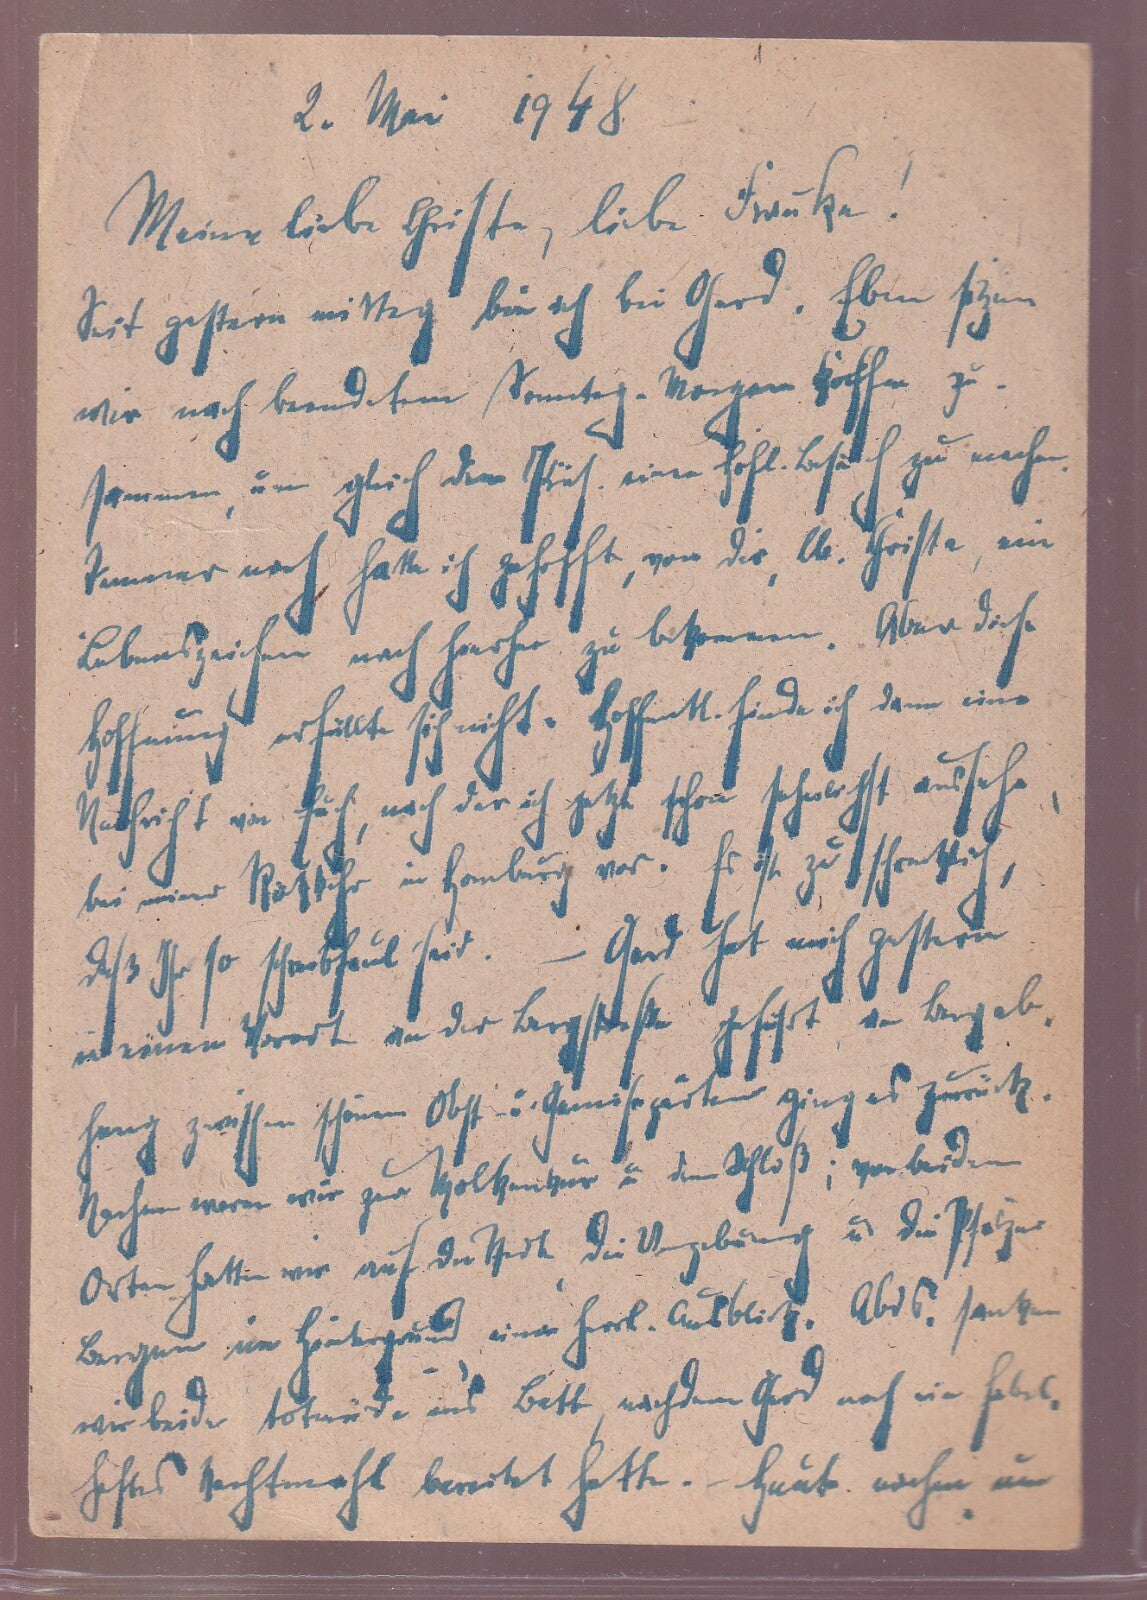 2. Mai 1948
Meine liebe Christa, liebe Frauke!
Seit gestern mittag bin ich bei Gerd. Eben sitzen
wir nach beendetem Sonntag-Morgen Koffen zu-
sammen, um gleich dem einen höfl. Besuch zu machen.
Immer noch hatte ich gehofft, von dir, lb. Christa, ein
Lebenszeichen nach hierher zu bekommen. Aber diese
Hoffnung erfüllte sich nicht. Hoffentl. finde ich dann eine
Nachricht von Euch, nach der ich jetzt schon sehnlichst aussehe,
bei meiner Rückkehr in Hamburg vor. Es ist zu schrecklich,
daß Ihr so schreibfaul seid. – Gerd hat mich gestern
in einen Vorort an der Bergstraße geführt, am Bergab-
hang zwischen schönen Obst- u. Gemüsegärten ging es zurück.
Nachm waren wir zur Molkenkur u dem Schloß; von beiden
Orten hatten wir auf die Stadt, die Umgebung u die Pfälzer
Berge im Hintergrund einen herrl. Ausblick. Abds. sanken
wir beide totmüde ins Bett, nachdem Gerd noch ein fabel-
haftes Nachtmahl bereitet hatte. – Heute nachm um